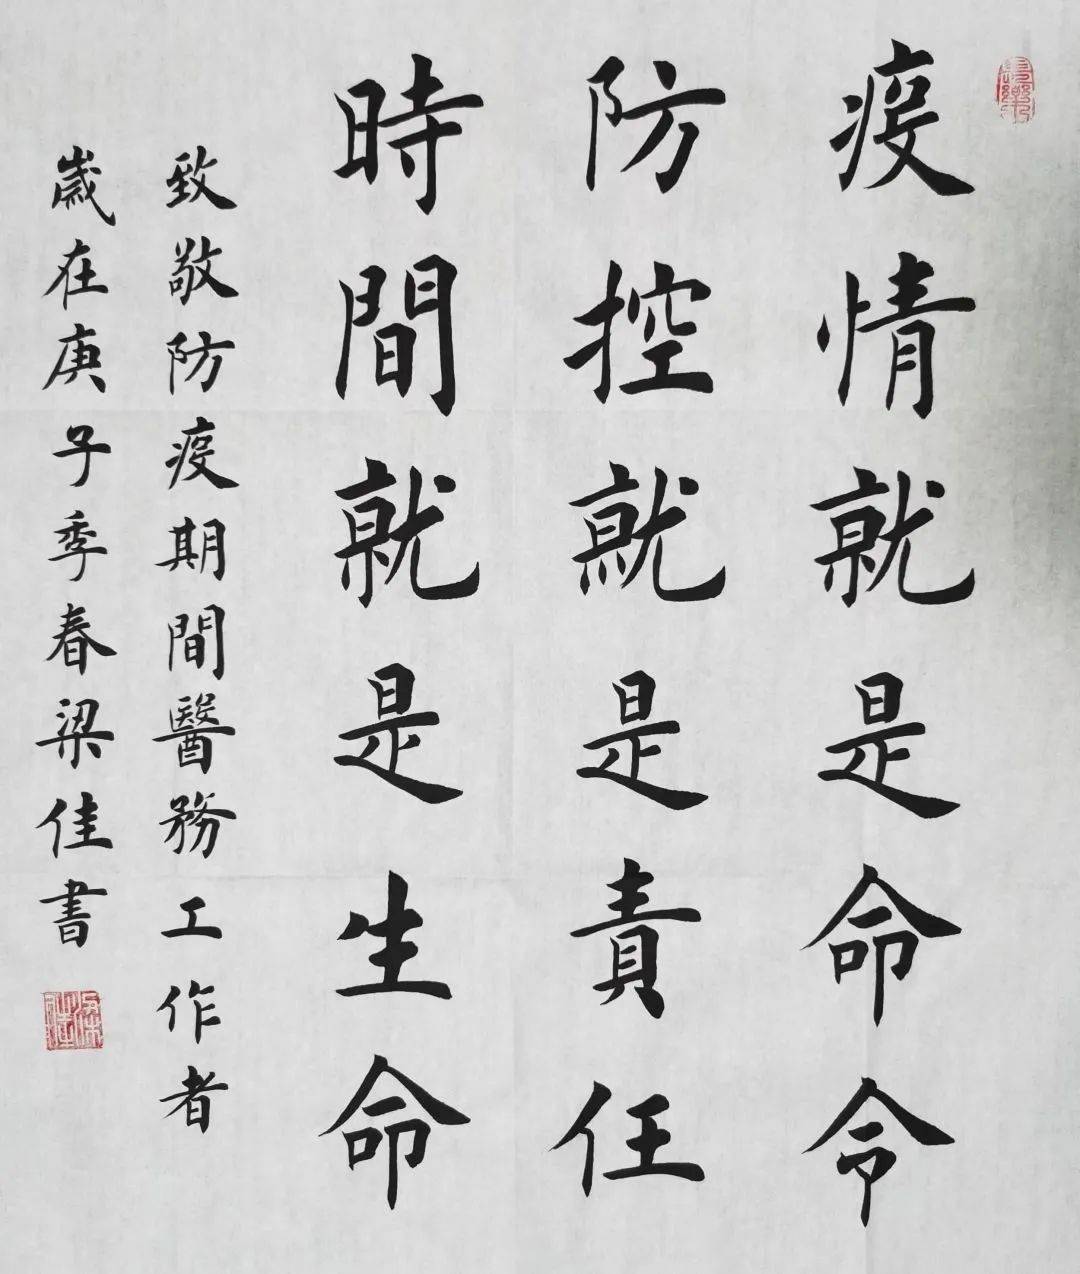 疫情就是命令
防控就是責任
時間就是生命
致敬防疫期間醫務工作者
歲在庚子季春梁佳書
梁佳